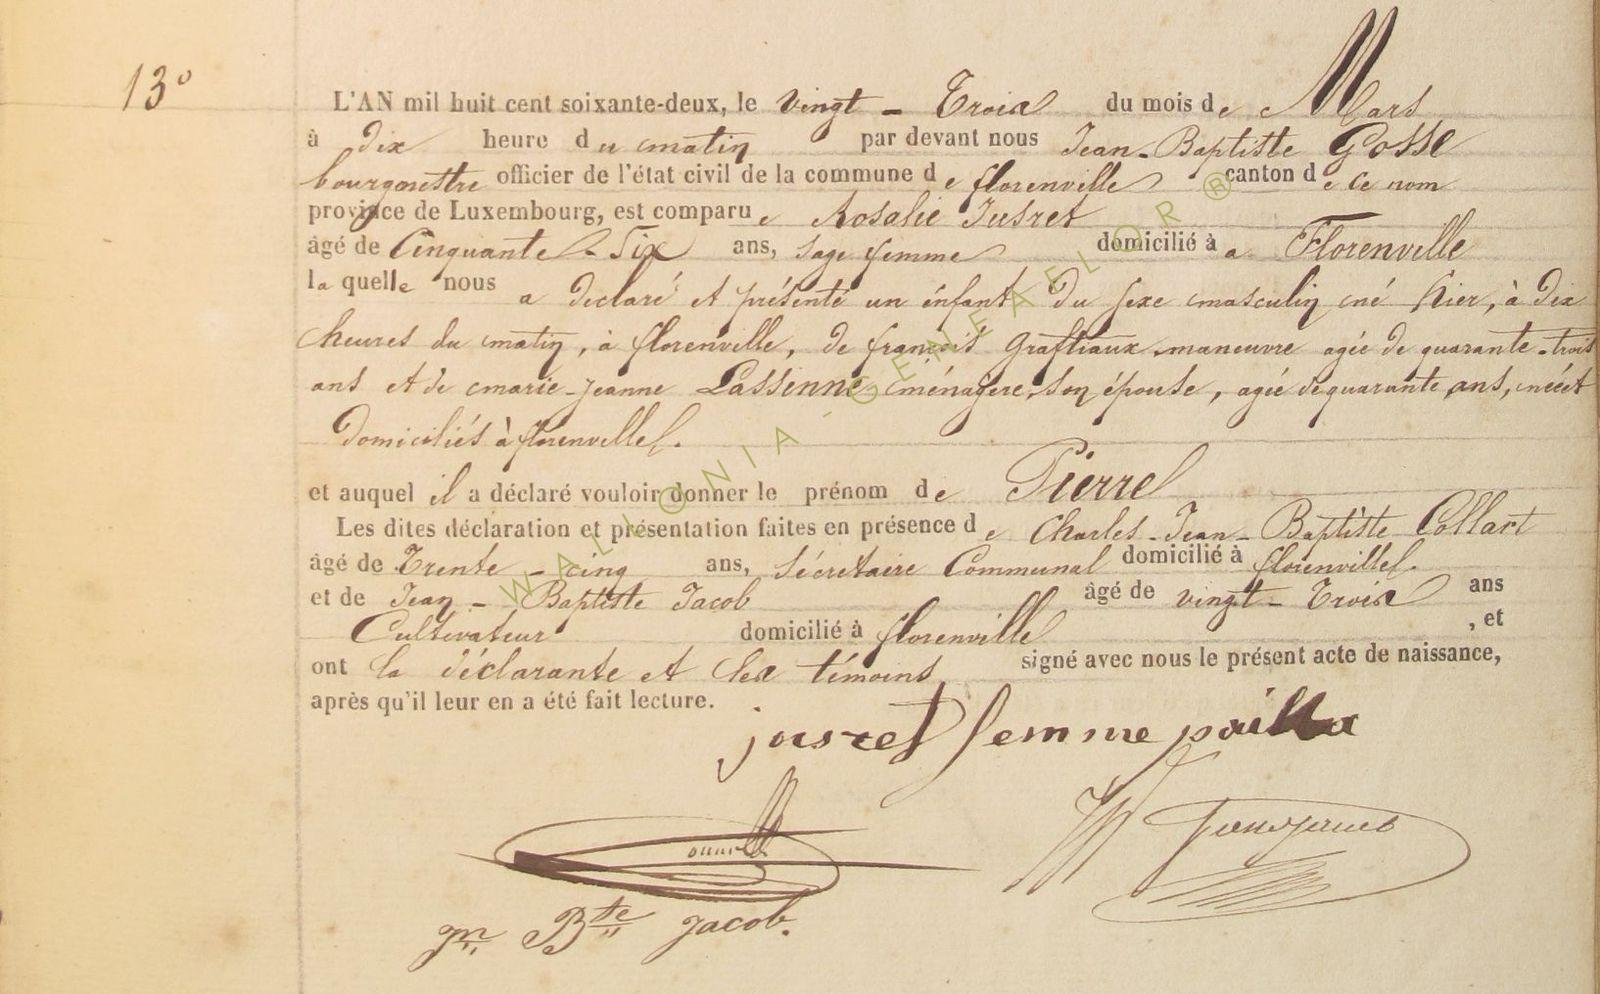 13°
L'AN mil huit cent soixante-deux, le vingt - Trois du mois de Mars
à dix heure du matin par devant nous Jean-Baptiste Gosse
bourgmestre officier de l'état civil de la commune de florenville canton de ce nom
province de Luxembourg, est comparue Rosalie Jusret
âgé de Cinquante-Six ans, sage femme domicilié à a Florenville
la quelle nous a declaré et présenté un énfant du sexe masculin né hier, à dix
heures du matin, à florenville, de françois Graftiaux manœuvre agée de quarante-trois
ans et de marie-jeanne Lassenne ménagère, son épouse, agée de quarante ans, née et
domiciliés à florenville.
et auquel il a déclaré vouloir donner le prénom de Pierre
Les dites déclaration et présentation faites en présence de Charles-Jean-Baptiste Collart
âgé de Trente-cinq ans, Sécretaire Communal domicilié à florenville.
et de Jean-Baptiste Jacob âgé de vingt-Trois ans
Cultivateur domicilié à florenville , et
ont la déclarante et les témoins signé avec nous le présent acte de naissance,
après qu'il leur en a été fait lecture.
jusret femme
Jn Bte Jacob.
WALLONIA-GENEAFLOR ®